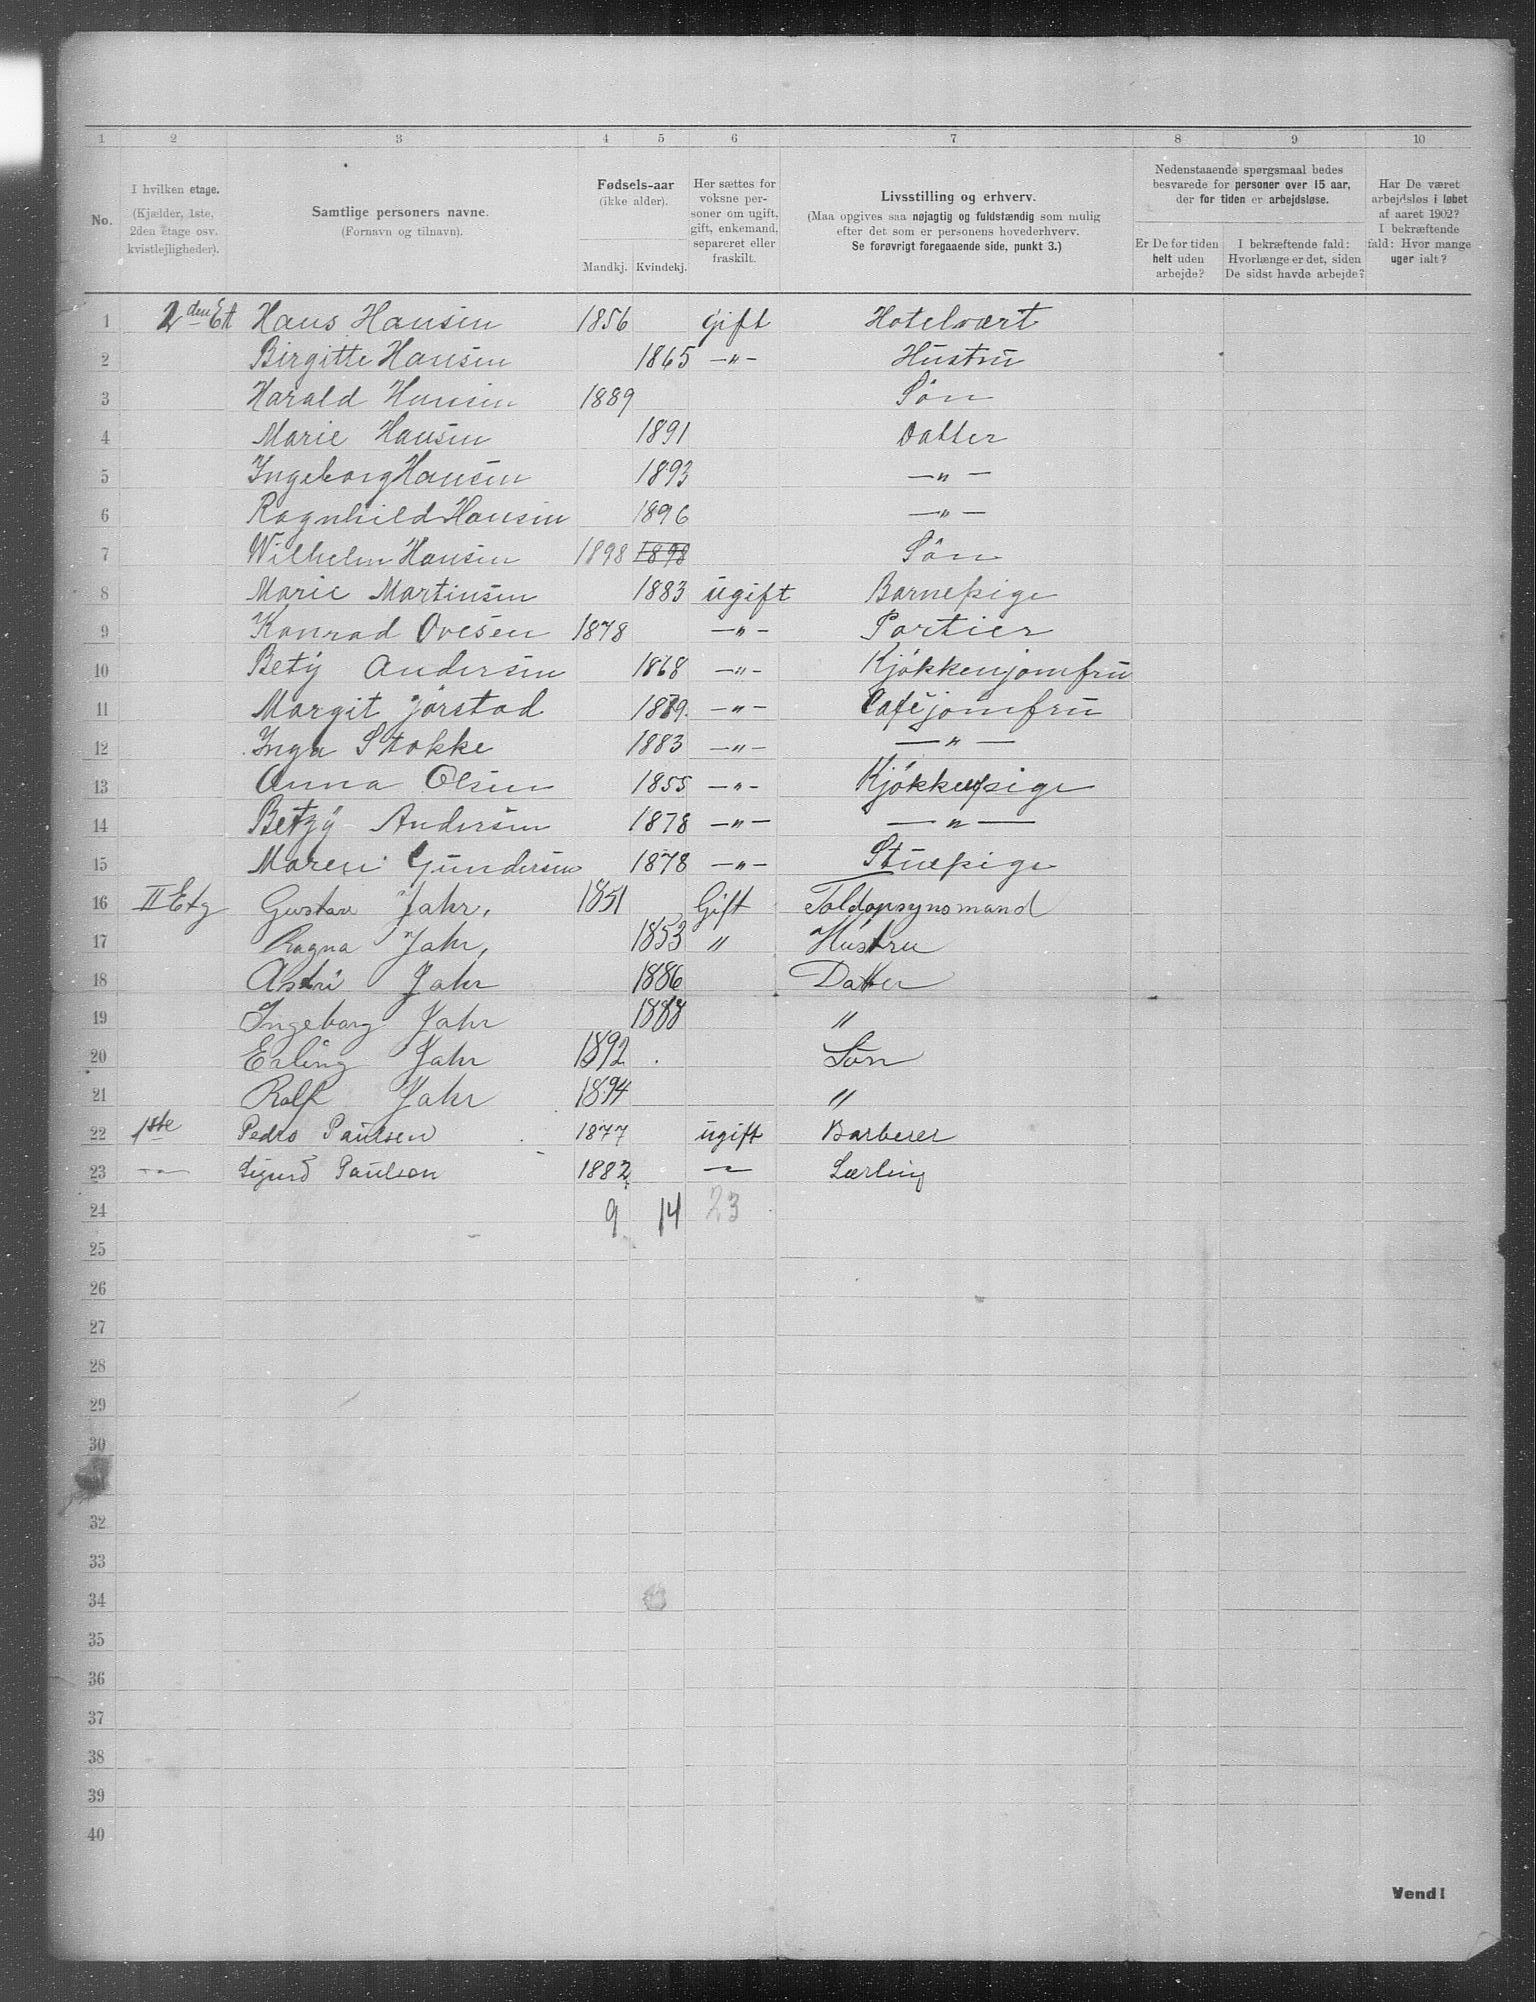 1 2 3 4 5 6 7 8 9 10
No.
I hvilken etage.
(Kjælder, 1ste,
2den etage osv.
kvistlejligheder).
Samtlige personers navne.
(Fornavn og tilnavn).
Fødsels-aar
(ikke alder).
Mandkj. Kvindekj.
Her sættes for
voksne per-
soner om ugift,
gift, enkemand,
separeret eller
fraskilt.
Livsstilling og erhverv.
(Maa opgives saa nøjagtig og fuldstændig som mulig
efter det som er personens hovederhverv.
Se forøvrigt foregaaende side, punkt 3.)
Nedenstaaende spørgsmaal bedes
besvarede for personer over 15 aar,
der for tiden er arbejdsløse.
Er De for tiden
helt uden
arbejde?
I bekræftende fald:
Hvorlænge er det, siden
De sidst havde arbejde?
Har De været
arbejdsløs i løbet
af aaret 1902?
I bekræftende
fald: Hvor mange
uger ialt?
1 2den Et Hans Hansen 1856 Gift Hotelvært
2 Birgitte Hansen 1865 —„— Hustru
3 Harald Hansen 1889 Søn
4 Marie Hansen 1891 Datter
5 Ingeborg Hansen 1893 —„—
6 Ragnhild Hansen 1896 —„—
7 Wilhelm Hansen 1898 1898 Søn
8 Marie Martinsen 1883 ugift Barnepige
9 Konrad Ovesen 1878 —„— Portier
10 Bety Andersen 1868 —„— Kjøkkenjomfru
11 Margit Jørstad 1879. —„— Cafejomfru
12 Inga Stokke 1883 —„— —„—
13 Anna Olsen 1855 —„— Kjøkkenpige
14 Betzy Andersen 1878 —„— —„—
15 Maren Gundersen 1878 —„— Stuepige
16 II Etg Gustav Jahr, 1851 Gift Toldopsynsmand
17 Ragna Jahr, 1853 „ Hustru
18 Astri Jahr 1886 Datter
19 Ingeborg Jahr 1888 „
20 Erling Jahr 1892 Søn
21 Rolf Jahr 1894 „
22 1ste Pedro Paulsen 1877 ugift Barberer
23 —„— Sigurd Paulson 1882 — Lærling
24 9 14 23
25
26
27
28
29
30
32
33
34
35
36
37
38
39
40
Vend!